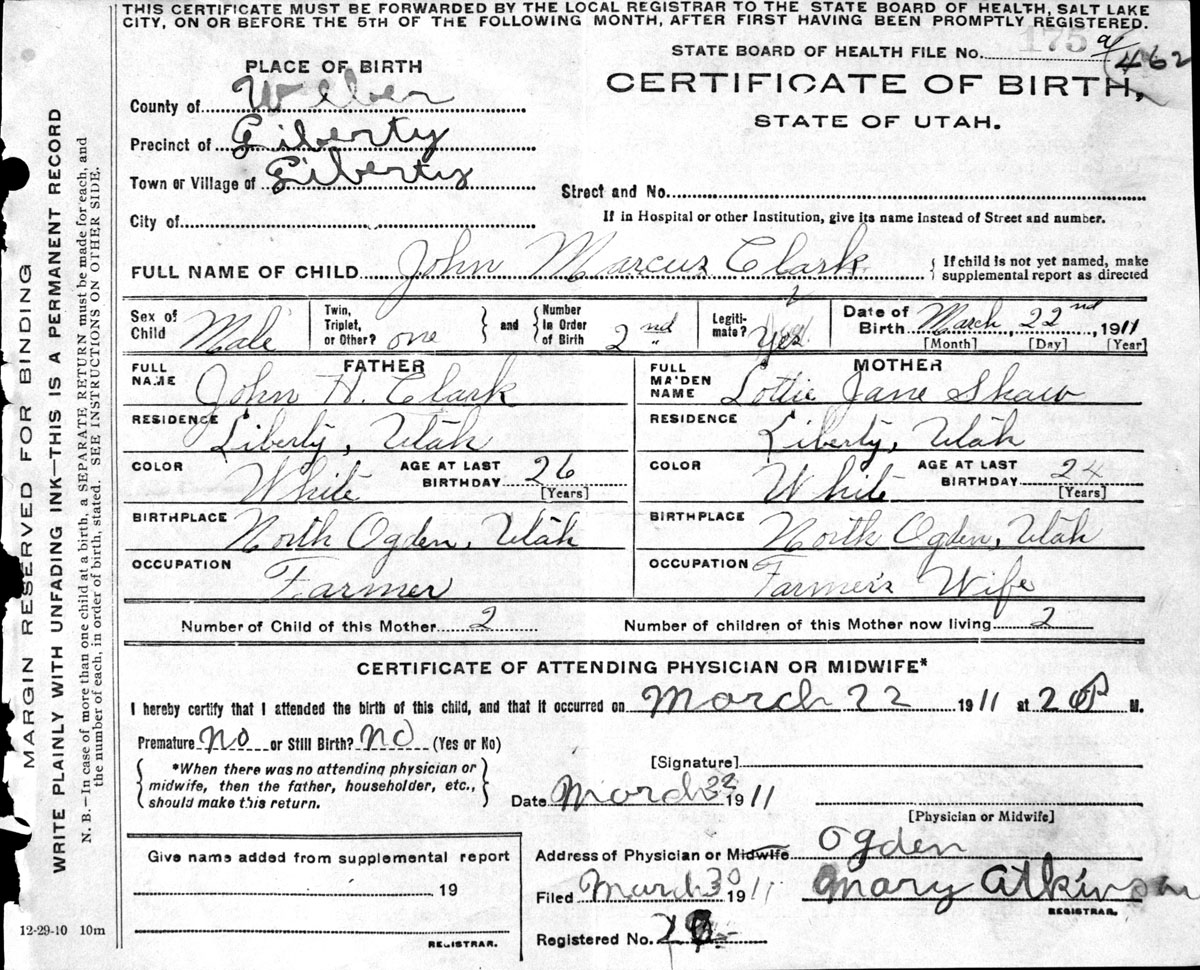 THIS CERTIFICATE MUST BE FORWARDED BY THE LOCAL REGISTRAR TO THE STATE BOARD OF HEALTH, SALT LAKE
CITY, ON OR BEFORE THE 5TH OF THE FOLLOWING MONTH, AFTER FIRST HAVING BEEN PROMPTLY REGISTERED.
STATE BOARD OF HEALTH FILE No. 175 a/462
PLACE OF BIRTH
CERTIFICATE OF BIRTH,
STATE OF UTAH.
County of Weber
Precinct of Liberty
Town or Village of Liberty
Street and No.
City of
If in Hospital or other Institution, give its name instead of Street and number.
FULL NAME OF CHILD John Marcus Clark { If child is not yet named, make supplemental report as directed
Sex of Child Male Twin, Triplet, or Other? one } and { Number in Order of Birth 2nd Legitimate? Yes Date of Birth March 22nd, 1911
[Month] [Day] [Year]
FATHER MOTHER
FULL NAME John H. Clark FULL MAIDEN NAME Lottie Jane Shaw
RESIDENCE Liberty, Utah RESIDENCE Liberty, Utah
COLOR White AGE AT LAST BIRTHDAY 26 [Years] COLOR White AGE AT LAST BIRTHDAY 24 [Years]
BIRTHPLACE North Ogden, Utah BIRTHPLACE North Ogden, Utah
OCCUPATION Farmer OCCUPATION Farmer's Wife
Number of Child of this Mother 2 Number of children of this Mother now living 2
CERTIFICATE OF ATTENDING PHYSICIAN OR MIDWIFE*
I hereby certify that I attended the birth of this child, and that it occurred on March 22 1911 at 2 P M.
Premature No or Still Birth? No (Yes or No)
[Signature]
{ *When there was no attending physician or
midwife, then the father, householder, etc.,
should make this return. }
Date March 1911
[Physician or Midwife]
Give name added from supplemental report
19
REGISTRAR.
Address of Physician or Midwife Ogden
Filed March 30 1911 Mary Atkinson
REGISTRAR.
Registered No.
12-29-10 10m
MARGIN RESERVED FOR BINDING
WRITE PLAINLY WITH UNFADING INK—THIS IS A PERMANENT RECORD
N. B.—In case of more than one child at a birth, a SEPARATE RETURN must be made for each, and
the number of each, in order of birth, stated. SEE INSTRUCTIONS ON OTHER SIDE.